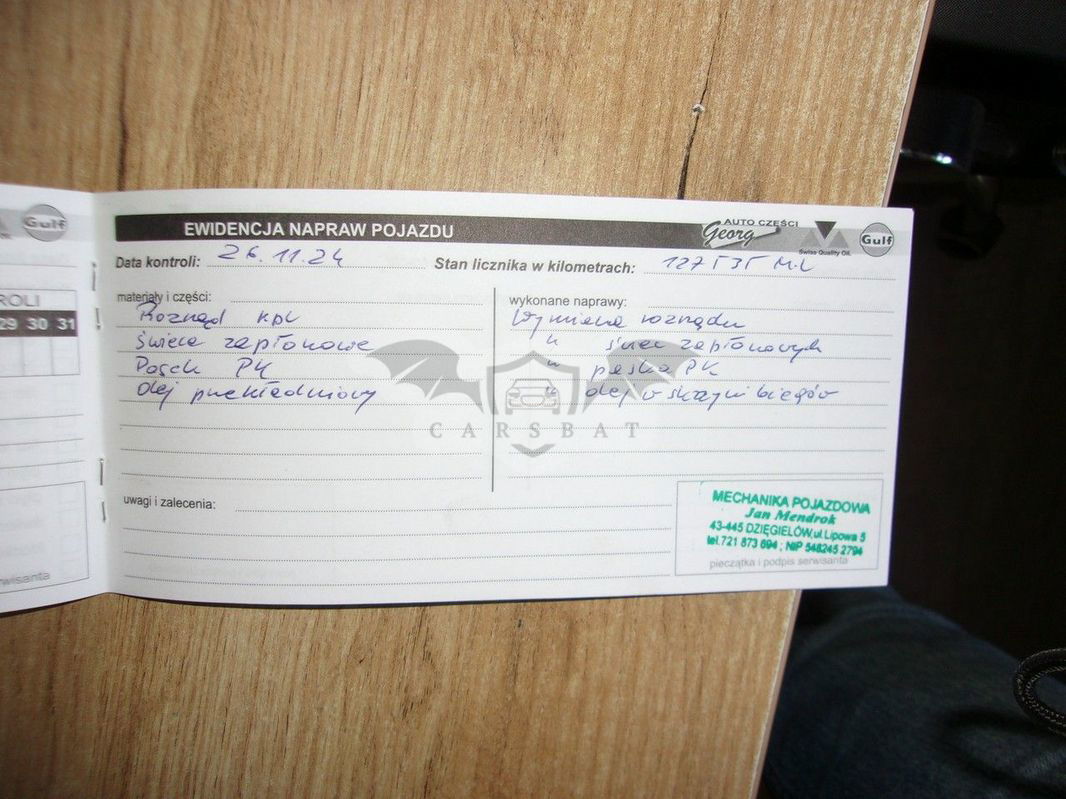 Gulf
ROLI
29 30 31
wisanta
EWIDENCJA NAPRAW POJAZDU
AUTO CZĘŚCI
Georg
Swiss Quality Oil
Gulf
Data kontroli: 26.11.24
Stan licznika w kilometrach: 127535 M.L
materiały i części:
Rozrząd kpl
Świece zapłonowe
Pasek PK
Olej przekładniowy
wykonane naprawy:
Wymiana rozrządu
" świec zapłonowych
" paska PK
" olej w skrzyni biegów
CARSBAT
uwagi i zalecenia:
MECHANIKA POJAZDOWA
Jan Mendrok
43-445 DZIĘGIELÓW, ul. Lipowa 5
tel. 721 873 694 ; NIP 548245 2794
pieczątka i podpis serwisanta